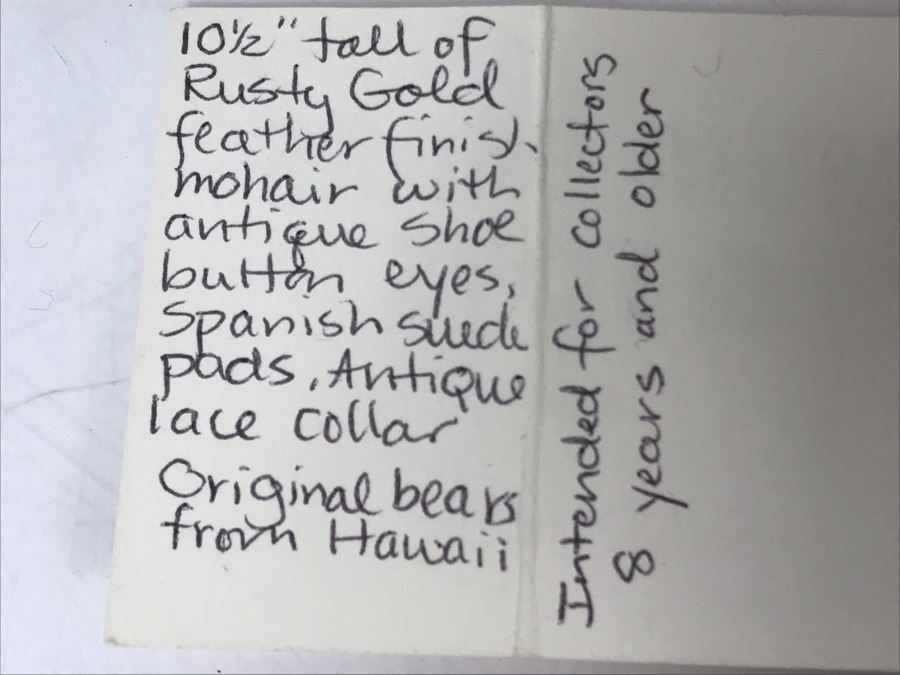 10½" tall of
Rusty Gold
feather finish
mohair with
antique shoe
button eyes,
Spanish suede
pads, Antique
lace collar
Original bears
from Hawaii
Intended for collectors
8 years and older